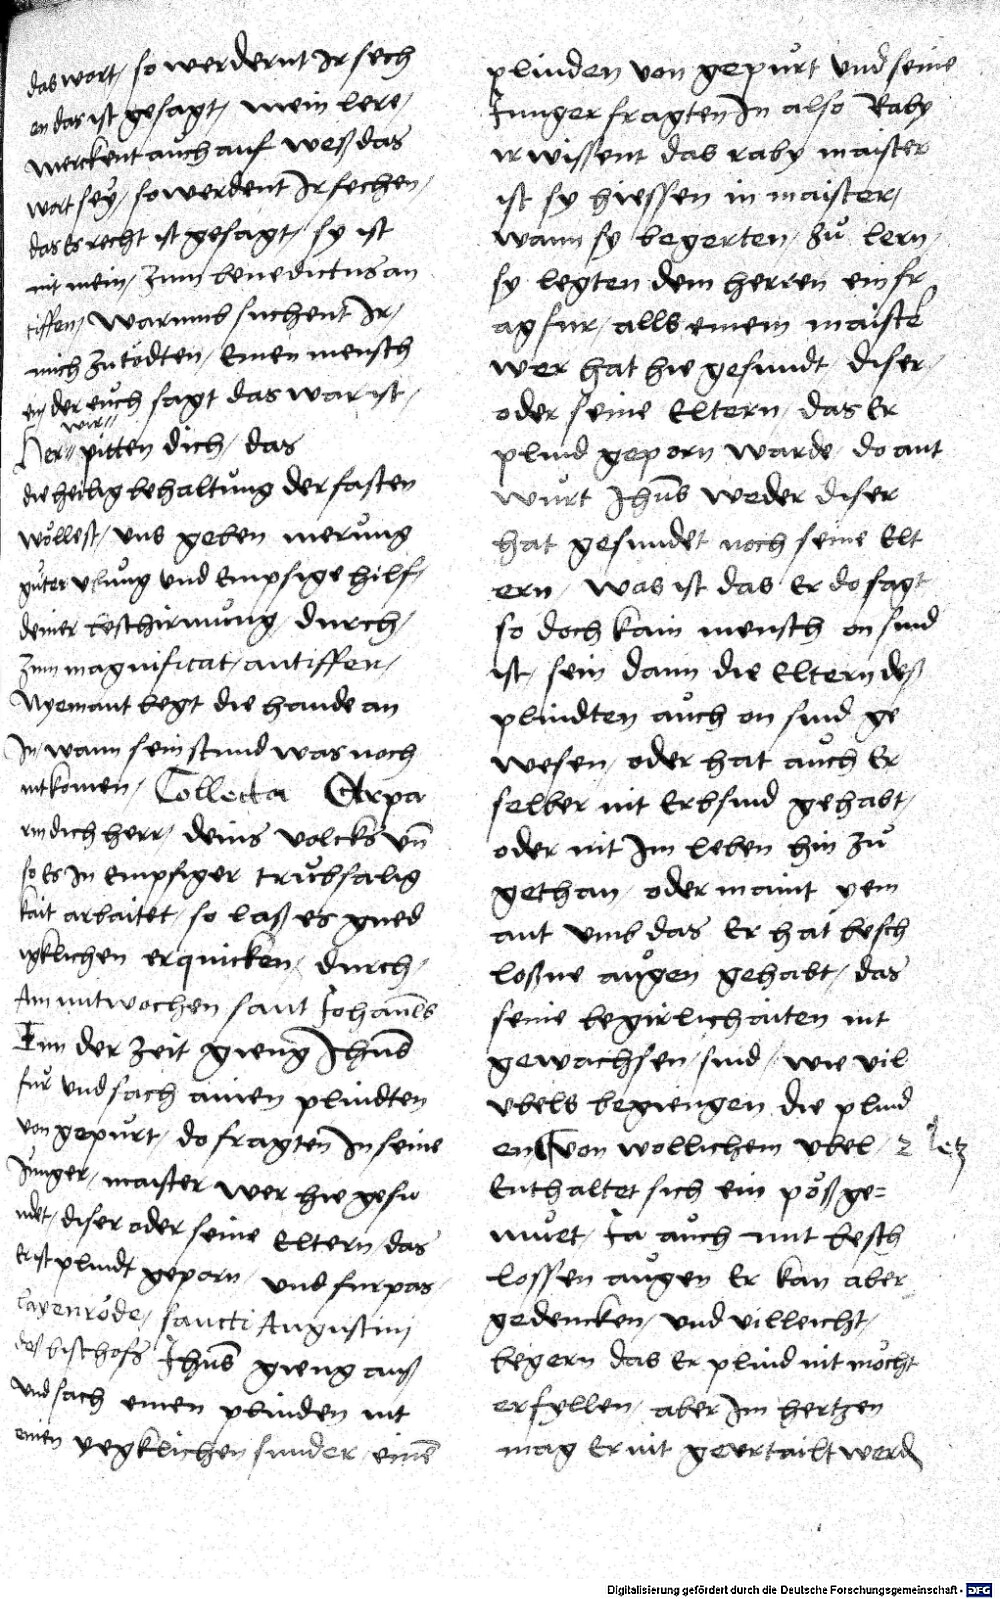 das wort, so werdernt Ir sech
en das ist gesagt, mein lere,
merckent auch auf weß das
wort seÿ, so werdent Ir sechen,
das Es recht ist gesagt, sy ist
nit mein, Zum benedictus an
tiffen, Warumb suchent Ir,
mich zu tödten, Einen mensch
en, der euch sagt das war ist,
wir
Herr pitten dich, das
die heilig behaltung der fasten
wöllest, uns geben merung
guter ubung und Empsige hilf,
deiner beschirmung, durch,
Zum magnificat, antiffen,
Nyemant legt die hande an
In, wann sein stund was noch
nit komen, Collecta Erpa
rm dich herr, deins volcks vn̄
so Es In Empsiger trubsalig
kait arbaitet, so laß es gned
igklichen erquicken, durch,
Am mitwochen sant Johanēs
Inn der Zeit gieng Jhūs
fur und sach ainen plindten
von gepurt, do fragten In seine
Junger, maister wer hie gesu
ndet, diser oder seine Eltern, das
Er ist plindt geporn, und furpas,
layenrode, sancti Augustinj
deß bischofs Jhūs gieng auß
und sach einen plinden nit
einen yegklichen sunder, einē
plinden von gepurt und seine
Junger fragten In also Raby
ir wissent das raby maister
ist sy hiessen in maister,
wann sy begerten, zu lern,
sy legten dem herren ein fr
ag fur, alls einem maister
wer hat hie gesundt diser,
oder seine Eltern, das Er
plind geporn warde, do ant
wurt Jhūs weder diser
hat gesundet noch seine Elt
ern, was ist das Er do sagt
so doch kain mensch on sund
ist, sein dann die Eltern deß
plindten auch on sund ge
wesen, oder hat auch Er
selber nit Erbsund gehabt,
oder nit Im leben hin zu
gethan, oder maint yem
ant umb das Er hat besch
loßne augen gehabt, das
seine begirlichaiten nit
gewachsen sind, wie vil
ubels begiengen die plind
en von wollichem ubel, 2 letz
Enthaltet sich ein pöß ge=
muet, Ja auch mit besch
lossen augen Er kan aber
gedencken, und villeicht,
begern das Er plind nit möcht
erfyllen, aber Im hertzen
mag Er nit geurtailt werd
Digitalisierung gefördert durch die Deutsche Forschungsgemeinschaft - DFG